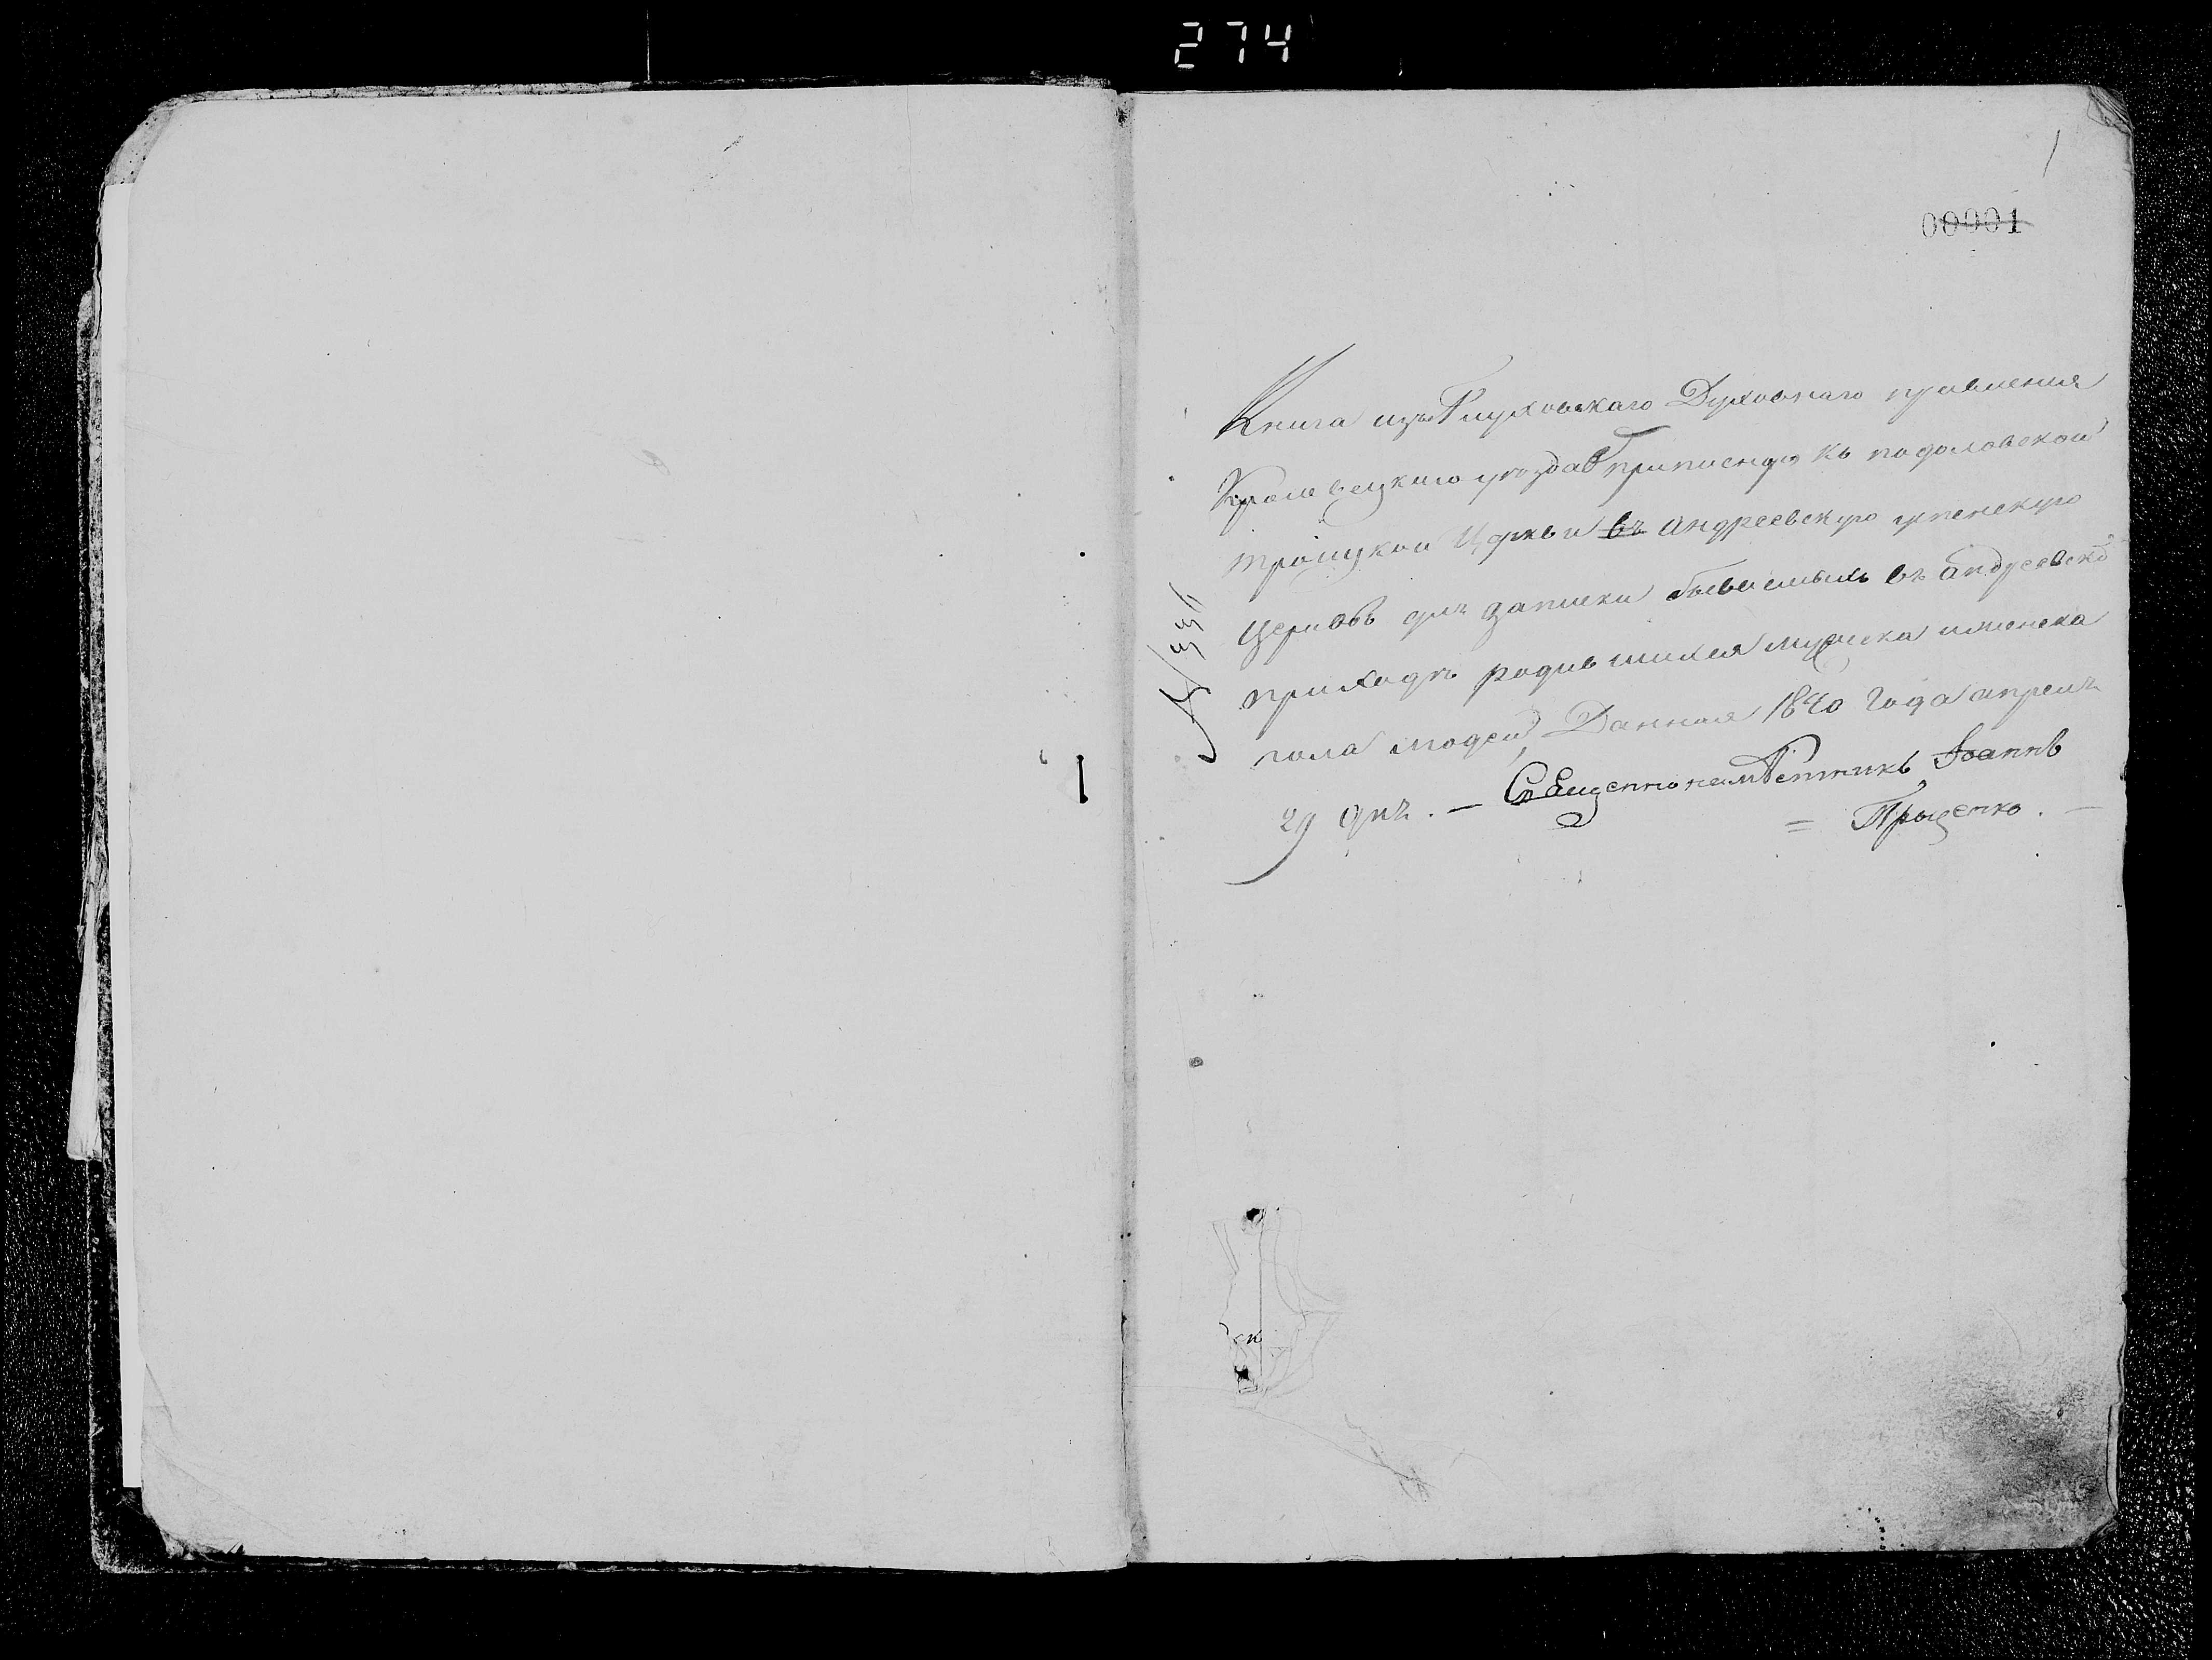 274
1
00001
Книга изъ Глуховскаго Духовнаго правления
Кролевецкого уезда въ приписную къ подоловской
троицкой Церкви въ андреевскую успенскую
Церковь для записки бываемыхъ въ андреевско
приходѣ родившихся мужеска и женска
пола людей, Данная 1840 года апреля
29 дня. — Священнонамѣстникъ Іоаннъ
= Проценко. —